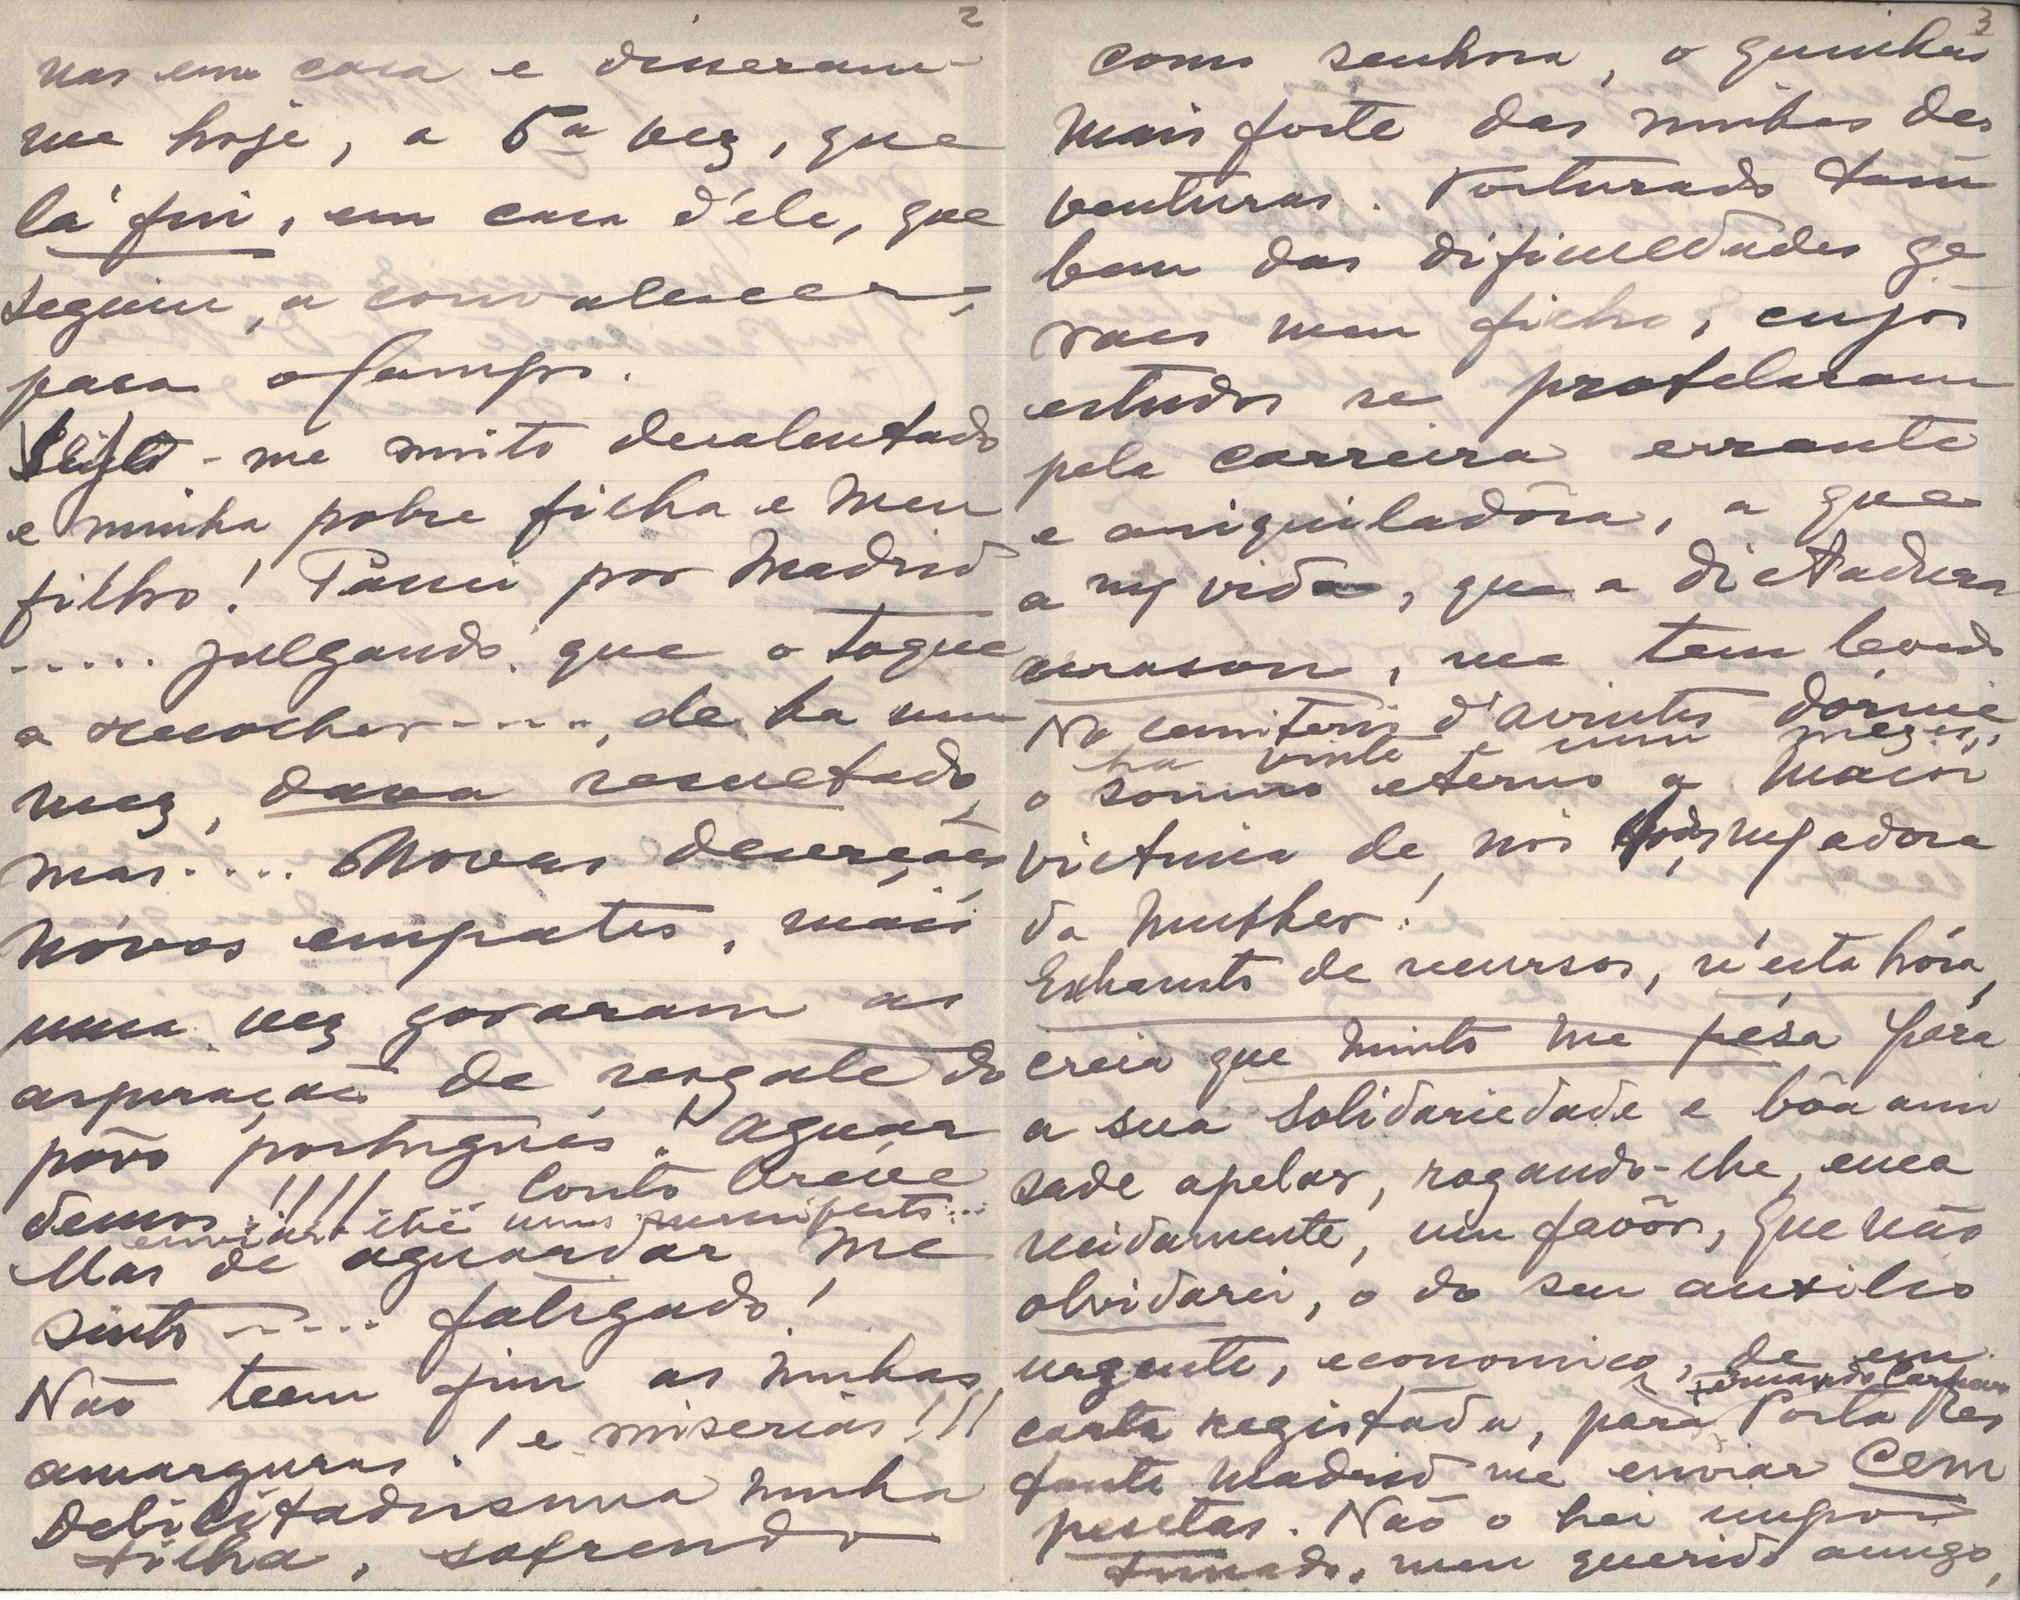 2
nas em casa e disseram-
me hoje, a 5ª vez, que
lá fui, em casa d'ele, que
seguiu, a convalescer,
para o Campo.
Sinto-me muito desalentado
e minha pobre filha e meu
filho! Passei por Madrid
..... julgando que o toque
a recolher ...., de ha um
mez, dava resultado,
mas.... Novas deserções
nóvos empates, mais
uma vez goraram as
aspiração de resgate do
pôvo português! Aguar
demos!!!! Conto brève
enviar-lhe uns manifestos...
Mas de aguardar me
sinto ..... fatigado!
Não teem fim as minhas
amarguras! e miserias!!!
Debilitadissima minha
filha, sofrendo
3
como senhora, o quinhão
mais forte das minhas des
venturas. Torturado tam
bem das dificuldades ge
raes meu filho, cujos
estudos se protelaram
pela carreira errante
e aniquiladôra, a que
a vida, que a dictadura
, me tem levado
No cemiterio d'Avintes dórme
ha vinte e um mezes,
o somno eterno a maior
victima de nós todos,
da Mulher!
Exhausto de recursos, n'esta hóra,
creia que muito me pésa para
a sua solidariedade e bôa ami
sade apelar, rogando-lhe, enca
recidamente, um favôr, que não
olvidarei, o do seu auxilio
urgente, economico, de em
carta registada, para Fernando Carper Posta Res
tante Madrid me enviar Cem
pesetas. Não o hei impor
tunado, meu querido amigo,